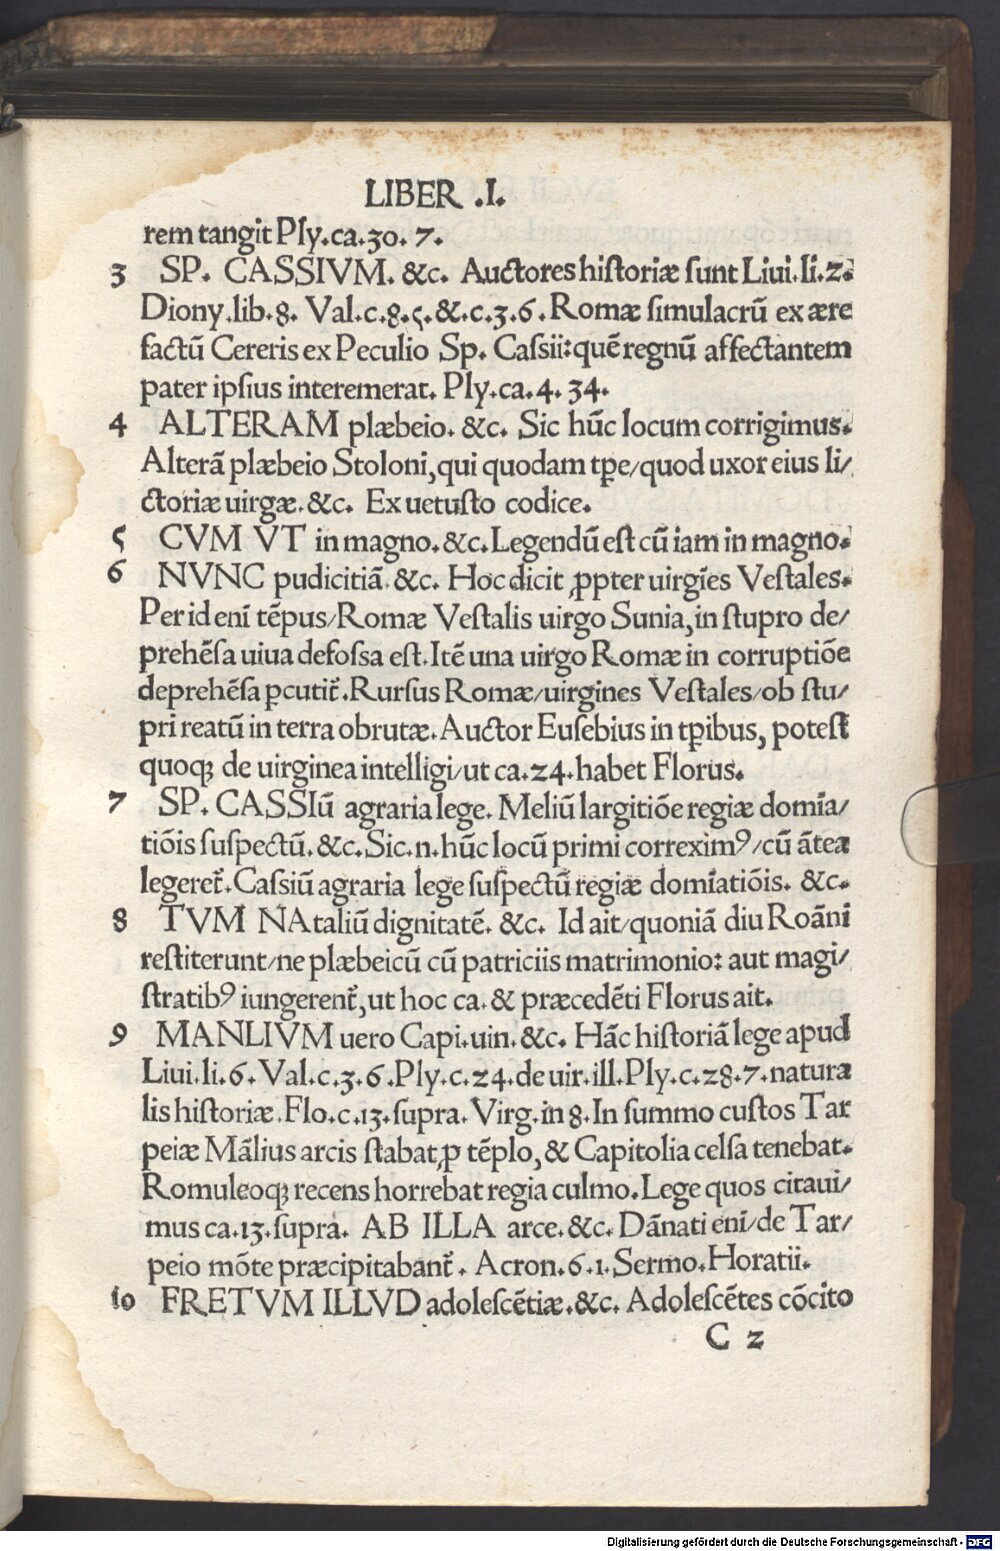 LIBER .I.
rem tangit Ply.ca.30.7.
3 SP. CASSIVM. &c. Auctores historiæ sunt Liui.li.2.
Diony.lib.8. Val.c.8.5.&.c.3.6. Romæ simulacrũ ex ære
factũ Cereris ex Peculio Sp. Cassii: quẽ regnũ affectantem
pater ipsius interemerat. Ply.ca.4.34.
4 ALTERAM plæbeio. &c. Sic hũc locum corrigimus.
Alterã plæbeio Stoloni, qui quodam tꝑe/quod uxor eius li/
ctoriæ uirgæ.&c. Ex uetusto codice.
5 CVM VT in magno.&c. Legendũ est cũ iam in magno.
6 NVNC pudicitiã.&c. Hoc dicit ꝓpter uirgĩes Vestales.
Per id enĩ tẽpus/Romæ Vestalis uirgo Sunia, in stupro de/
prehẽsa uiua defossa est. Itẽ una uirgo Romæ in corruptiõe
deprehẽsa ꝑcutit̃. Rursus Romæ/uirgines Vestales/ob stu/
pri reatũ in terra obrutæ. Auctor Eusebius in tꝑibus, potest
quoqꝫ de uirginea intelligi/ut ca.24.habet Florus.
7 SP. CASSIũ agraria lege. Meliũ largitiõe regiæ domĩa/
tiõis suspectũ.&c. Sic.n.hũc locũ primi correximꝰ/cũ ãtea
legeret̃. Cassiũ agraria lege suspectũ regiæ domĩatiõis. &c.
8 TVM NAtaliũ dignitatẽ. &c. Id ait/quoniã diu Roãni
restiterunt/ne plæbeicũ cũ patriciis matrimonio: aut magi/
stratibꝰ iungerent̃, ut hoc ca.& præcedẽti Florus ait.
9 MANLIVM uero Capi.uin.&c. Hãc historiã lege apud
Liui.li.6.Val.c.3.6.Ply.c.24.de uir.ill.Ply.c.28.7.natura
lis historiæ.Flo.c.13.supra. Virg.in 8.In summo custos Tar
peiæ Mãlius arcis stabat, ꝓ tẽplo, & Capitolia celsa tenebat.
Romuleoqꝫ recens horrebat regia culmo. Lege quos citaui/
mus ca.13.supra. AB ILLA arce.&c. Dãnati enĩ/de Tar/
peio mõte præcipitabant̃. Acron.6.1.Sermo.Horatii.
10 FRETVM ILLVD adolescẽtiæ.&c. Adolescẽtes cõcito
C 2
Digitalisierung gefördert durch die Deutsche Forschungsgemeinschaft - DFG